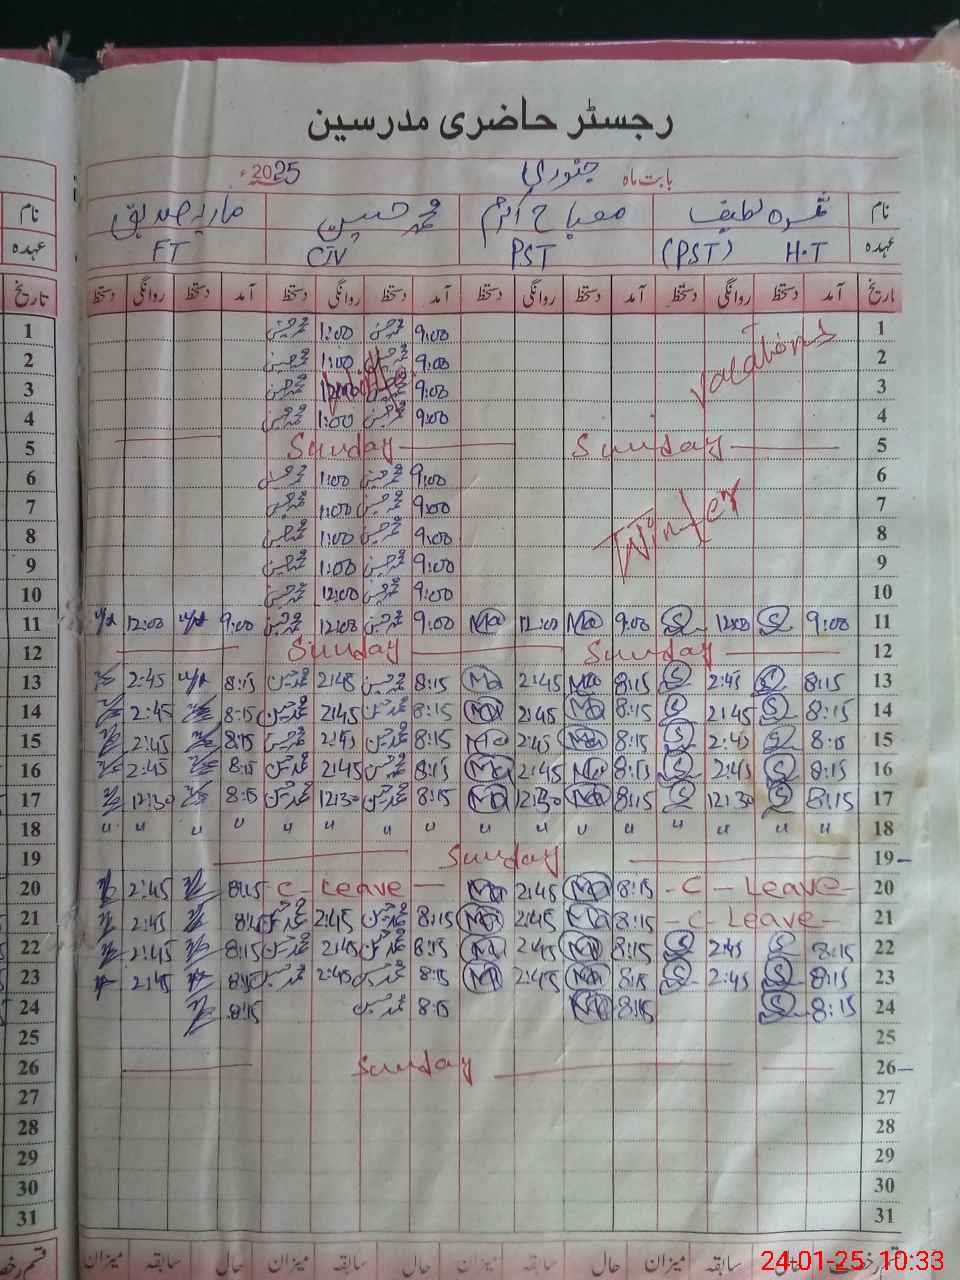 رجسٹر حاضری مدرسین
بابت ماہ جنوری 2025ء
نام لطیف مصباح اکرم محمد حسین ماریہ صدیق نام
عہدہ H.T (PST) PST CIV FT عہدہ
تاریخ آمد دستخط روانگی دستخط آمد دستخط روانگی دستخط آمد دستخط روانگی دستخط آمد دستخط روانگی دستخط تاریخ
1 9:00 محمد حسین 1:00 محمد حسین 1
2 vacations 9:00 محمد حسین 1:00 محمد حسین 2
3 9:00 محمد حسین 12:00 محمد حسین 3
4 9:00 محمد حسین 1:00 محمد حسین 4
5 Sunday Sunday 5
6 9:00 محمد حسین 1:00 محمد حسین 6
7 Winter 9:00 محمد حسین 1:00 محمد حسین 7
8 9:00 محمد حسین 1:00 محمد حسین 8
9 9:00 محمد حسین 1:00 محمد حسین 9
10 9:00 محمد حسین 12:00 محمد حسین 10
11 9:00 S 12:00 S 9:00 Ma 12:00 Ma 9:00 محمد حسین 12:00 محمد حسین 9:00 12:00 11
12 Sunday Sunday 12
13 8:15 S 2:45 S 8:15 Ma 2:45 Ma 8:15 محمد حسین 2:45 محمد حسین 8:15 2:45 13
14 8:15 S 2:45 S 8:15 Ma 2:45 Ma 8:15 محمد حسین 2:45 محمد حسین 8:15 2:45 14
15 8:15 S 2:45 S 8:15 Ma 2:45 Ma 8:15 محمد حسین 2:45 محمد حسین 8:15 2:45 15
16 8:15 S 2:45 S 8:15 Ma 2:45 Ma 8:15 محمد حسین 2:45 محمد حسین 8:15 2:45 16
17 8:15 S 12:30 S 8:15 Ma 12:30 Ma 8:15 محمد حسین 12:30 محمد حسین 8:15 12:30 17
18 " " " " " " " " " " " " " " " " 18
19 Sunday 19
20 - C - Leave - 8:15 Ma 2:45 Ma C - Leave - 8:15 2:45 20
21 - C - Leave - 8:15 Ma 2:45 Ma 8:15 محمد حسین 2:45 محمد حسین 8:15 2:45 21
22 8:15 S 2:45 S 8:15 Ma 2:45 Ma 8:15 محمد حسین 2:45 محمد حسین 8:15 2:45 22
23 8:15 S 2:45 S 8:15 Ma 2:45 Ma 8:15 محمد حسین 2:45 محمد حسین 8:15 2:45 23
24 8:15 S 8:15 Ma 8:15 محمد حسین 8:15 24
25 25
26 Sunday 26
27 27
28 28
29 29
30 30
31 31
حال سابقہ میزان حال سابقہ میزان حال سابقہ میزان حال سابقہ میزان
24-01-25 10:33